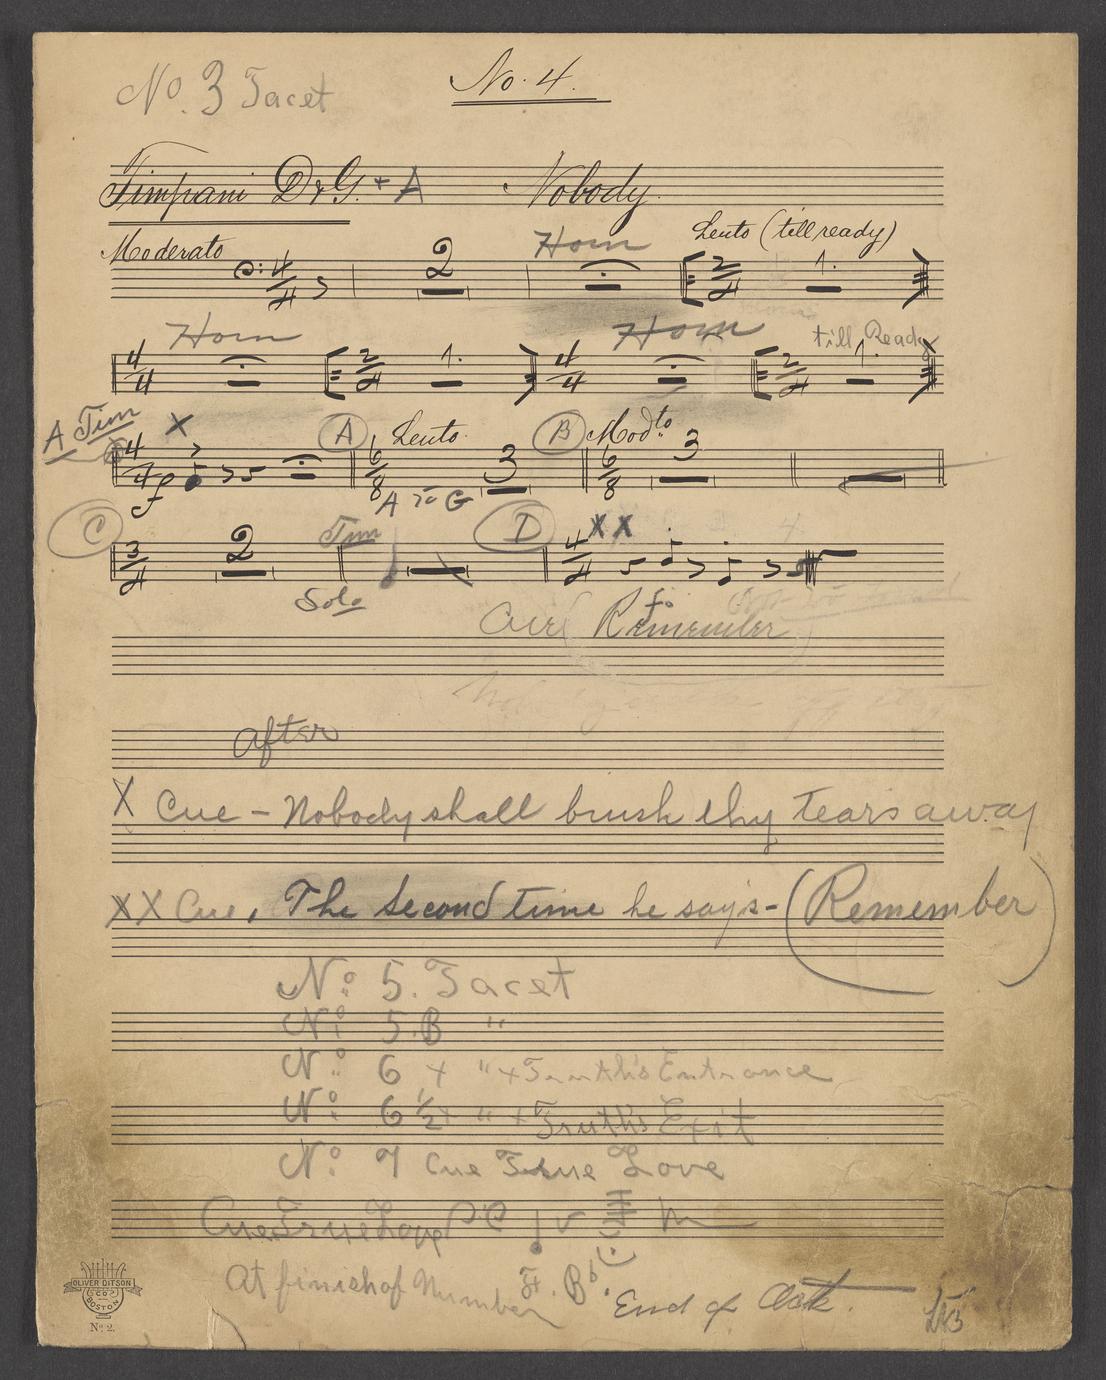 No. 3 Tacet
No. 4.
Timpani D & G. + A Nobody.
Moderato 4/4 2 Horn Lento (till ready) 2/4 1.
Horn Horn till Ready
4/4 2/4 1. 4/4 2/4 1.
A Tim X A Lento. B Modto
4/4 f 6/8 3 6/8 3
A to G
C Tim D XX
3/4 2 4/4
Solo f
Cue (Remember)
after
X Cue - Nobody shall brush thy tears away
XX Cue, The second time he says - (Remember)
No. 5. Tacet
No. 5.B "
No. 6 + " + Truth's Entrance
No. 6 1/2 + " + Truth's Exit
No. 7 Cue True Love
Cue True Love
At finish of Number F. Bb. End of Act.
OLIVER DITSON
CO.
BOSTON
No. 2.